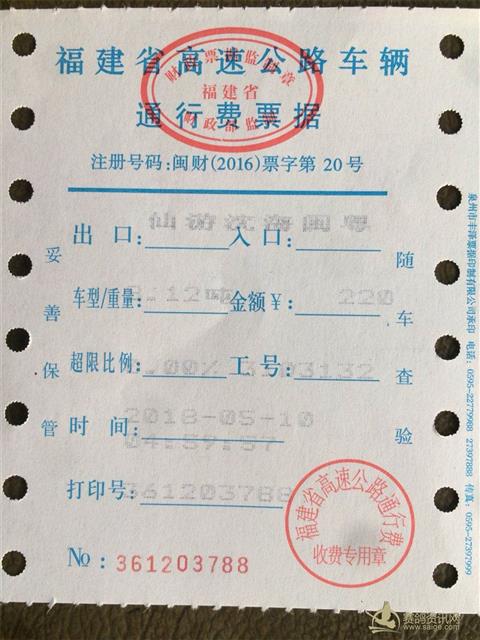 福建省高速公路车辆
财政票据监制章
福建省
财政部监制
通行费票据
注册号码:闽财(2016)票字第 20 号
仙游沈海闽粤
出 口: 入 口:
车型/重量: 金额¥: 220
超限比例: 工号: 3503132
时 间: 2018-05-10
04:59:57
打印号: 361203788
№: 361203788
妥善保管
随车查验
福建省高速公路通行费
收费专用章
泉州市丰泽票据印制有限公司承印 电话: 0595-22779988 27397888 传真: 0595-27397999
赛鸽资讯网
www.saige.com